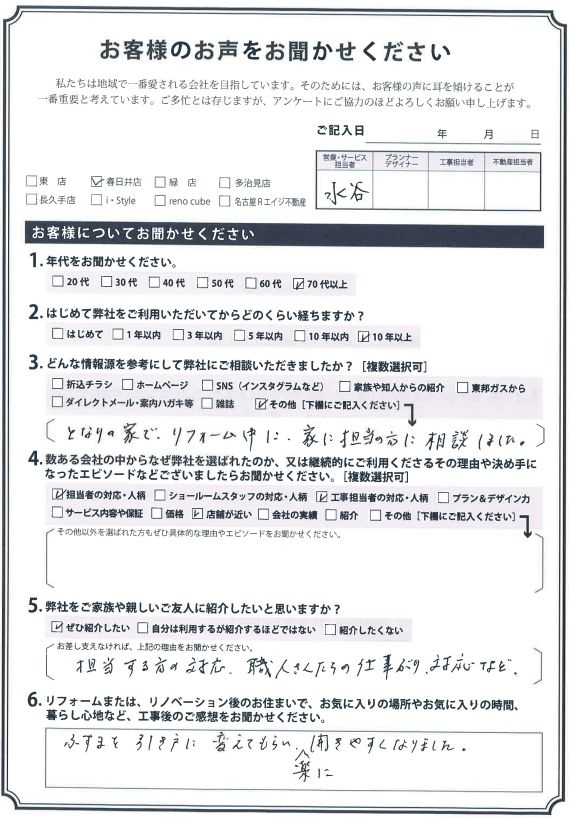 お客様のお声をお聞かせください
私たちは地域で一番愛される会社を目指しています。そのためには、お客様の声に耳を傾けることが
一番重要と考えています。ご多忙とは存じますが、アンケートにご協力のほどよろしくお願い申し上げます。
ご記入日 年 月 日
営業・サービス担当者 プランナーデザイナー 工事担当者 不動産担当者
水谷
□東 店 ☑春日井店 □緑 店 □多治見店
□長久手店 □i・Style □reno cube □名古屋Rエイジ不動産
お客様についてお聞かせください
1.年代をお聞かせください。
□20代 □30代 □40代 □50代 □60代 ☑70代以上
2.はじめて弊社をご利用いただいてからどのくらい経ちますか？
□はじめて □1年以内 □3年以内 □5年以内 □10年以内 ☑10年以上
3.どんな情報源を参考にして弊社にご相談いただきましたか？［複数選択可］
□折込チラシ □ホームページ □SNS（インスタグラムなど） □家族や知人からの紹介 □東邦ガスから
□ダイレクトメール・案内ハガキ等 □雑誌 ☑その他［下欄にご記入ください］
となりの家で、リフォーム中に、家に担当の方に相談しました。
4.数ある会社の中からなぜ弊社を選ばれたのか、又は継続的にご利用くださるその理由や決め手に
なったエピソードなどございましたらお聞かせください。［複数選択可］
☑担当者の対応・人柄 □ショールームスタッフの対応・人柄 ☑工事担当者の対応・人柄 □プラン＆デザイン力
□サービス内容や保証 □価格 ☑店舗が近い □会社の実績 □紹介 □その他［下欄にご記入ください］
その他以外を選ばれた方もぜひ具体的な理由やエピソードをお聞かせください。
5.弊社をご家族や親しいご友人に紹介したいと思いますか？
☑ぜひ紹介したい □自分は利用するが紹介するほどではない □紹介したくない
お差し支えなければ、上記の理由をお聞かせください。
担当する方の対応、職人さんたちの仕事がり、対応など。
6.リフォームまたは、リノベーション後のお住まいで、お気に入りの場所やお気に入りの時間、
暮らし心地など、工事後のご感想をお聞かせください。
ふすまを引き戸に変えてもらい、開きやすくなりました。
楽に